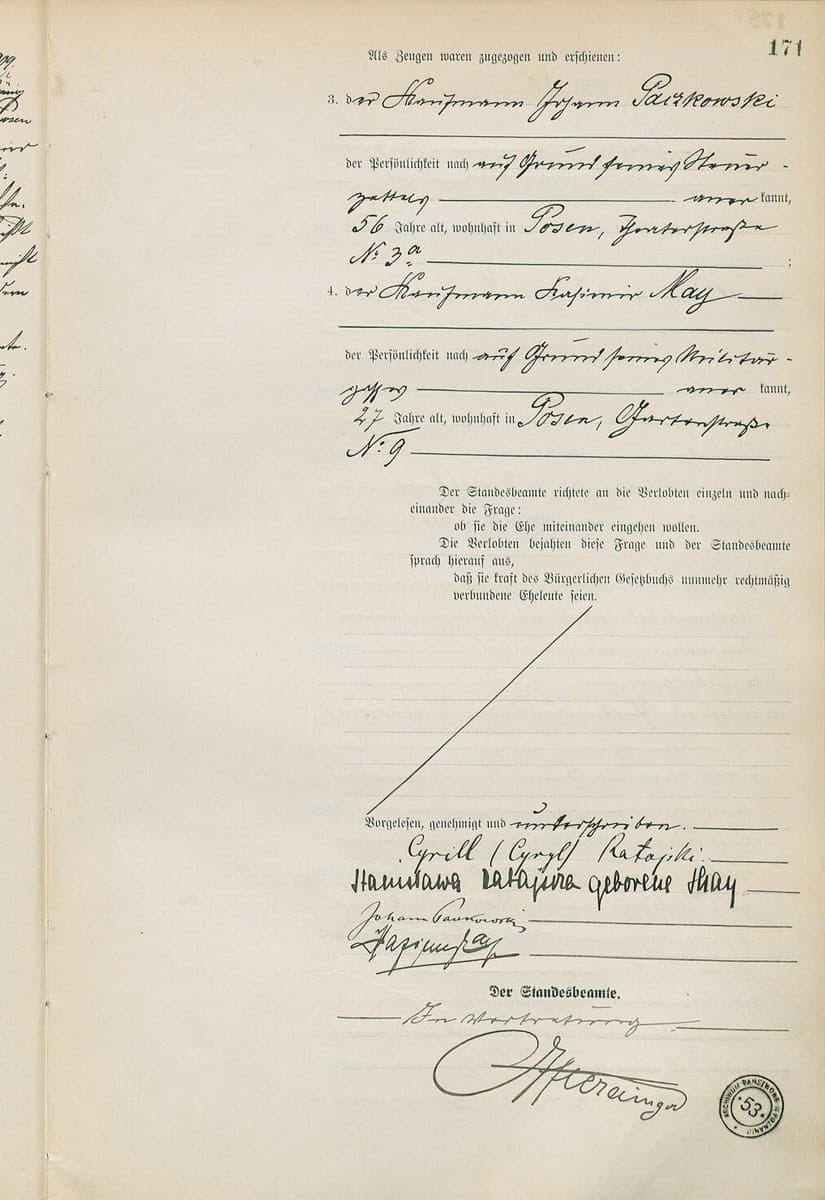 171
Als Zeugen waren zugezogen und erschienen:
3. der Kaufmann Johann Paczkowski
der Persönlichkeit nach auf Grund seines Steuer-
zettels aner kannt,
56 Jahre alt, wohnhaft in Posen, Theaterstraße
No. 3a ;
4. der Kaufmann Kasimir May
der Persönlichkeit nach auf Grund seines Militär-
passes aner kannt,
27 Jahre alt, wohnhaft in Posen, Gartenstraße
No. 9
Der Standesbeamte richtete an die Verlobten einzeln und nach-
einander die Frage:
ob sie die Ehe miteinander eingehen wollen.
Die Verlobten bejahten diese Frage und der Standesbeamte
sprach hierauf aus,
daß sie kraft des Bürgerlichen Gesetzbuchs nunmehr rechtmäßig
verbundene Eheleute seien.
Vorgelesen, genehmigt und unterschrieben.
Cyrill (Cyryl) Ratajski.
Stanisława Ratajska geborene May
Johann Paczkowski
Der Standesbeamte.
In Vertretung
ARCHIWUM PAŃSTWOWE W POZNANIU
53